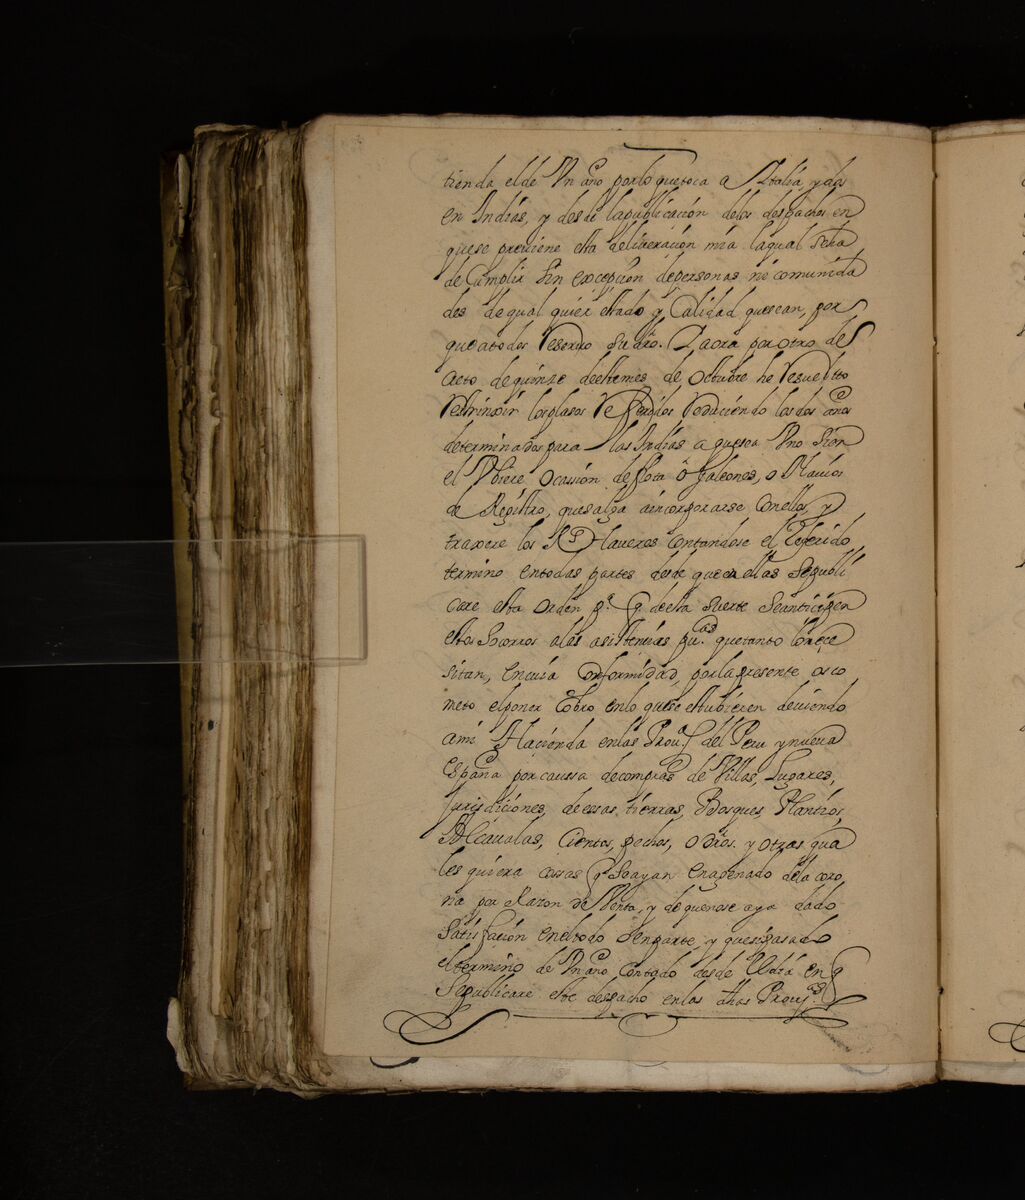 tienda el de Vn año por lo que toca a Italia y dos
en Indias, y desde la publicación de los despachos en
que se previene esta deliberación mia la qual se ha
de Cumplir Sin excepción de personas ni comunida
des de qual quier estado y Calidad que sean, por
que a todos reservo su dro. Y aora por otro de
creto de quinze de este mes de Octubre he resuelto
restrinxir los plasos referidos reduciendo los dos años
determinados para las Indias a que sea Vno Si en
el Vbiere Ocassión de flota ó Galeones, o Navios
de Registro, que salga a incorporarse Con ellos, y
traxere los Rs haveres Contandose el referido
termino en todas partes desde que en ellas Se publi
care esta orden pa. q de esta suerte Se anticipen
estos Socorros a las asistencias pu.cas que tanto lo nece
sitan, en cuia Conformidad, por la presente os co
meto el poner Cobro en lo que se estubieren deviendo
a mi Hacienda en las Prou.s del Peru y nueva
España por caussa de compras de Villas, Lugares,
Jurisdiciones, dehessas, tierras, Bosques, Plantios,
Alcavalas, Cientos, pechos, o dros. y otras qua
les quiera cossas q Se ayan enagenado de la coro
na por Razon de Venta, y de que no se aya dado
Satisfación en el todo o en parte, y que si pasado
el termino de Vn año Contado desde el dia en q
Se publicare este despacho en las dhas Prouj.as